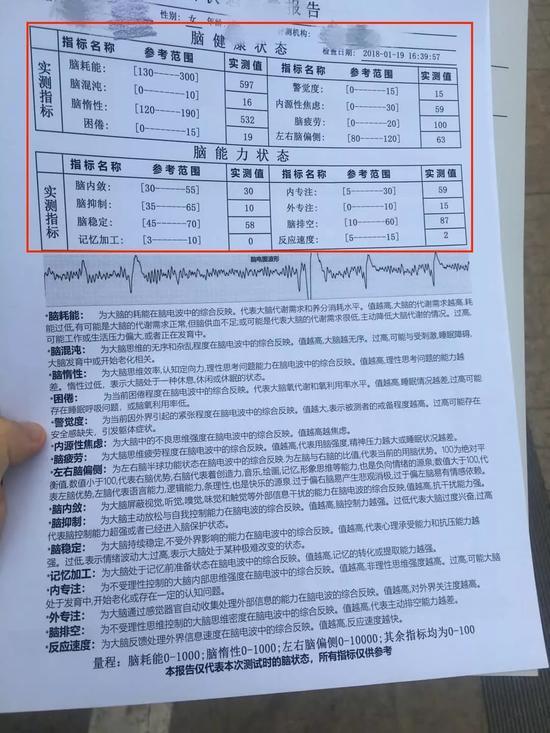 报告
性别：女 年龄：
测评机构：
脑健康状态
检查日期：2018-01-19 16:39:57
实测指标
指标名称 参考范围 实测值
脑耗能： [130-----300] 597
脑混沌： [0------10] 16
脑惰性： [120-----190] 532
困倦： [0------15] 19
指标名称 参考范围 实测值
警觉度： [0------15] 15
内源性焦虑： [0------30] 59
脑疲劳： [0------20] 100
左右脑偏侧： [80-----120] 63
脑能力状态
实测指标
指标名称 参考范围 实测值
脑内敛： [30------55] 30
脑抑制： [35------65] 10
脑稳定： [45------70] 58
记忆加工： [3------10] 0
指标名称 参考范围 实测值
内专注： [5------30] 59
外专注： [0------10] 15
脑排空： [10------60] 87
反应速度： [5------15] 2
脑电图波形
•脑耗能： 为大脑的耗能在脑电波中的综合反映。代表大脑代谢需求和养分消耗水平。值越高,大脑的代谢需求越高,耗
能过低,有可能是大脑的代谢需求正常,但脑供血不足;或可能是代表大脑的代谢需求很低,主动降低大脑代谢的情况。过高,
可能工作或生活压力偏大,或者正在发育中。
•脑混沌： 为大脑思维的无序和杂乱程度在脑电波中的综合反映。值越高,大脑越无序。过高,可能与受刺激,睡眠障碍,
大脑发育中或开始老化相关。
•脑惰性： 为大脑思维效率,认知定向力,理性思考问题能力在脑电波中的综合反映。值越高,理性思考问题的能力越
差。惰性过低，表示大脑处于一种休息,休闲或休眠的状态。
•困倦： 为当前困倦程度在脑电波中的综合反映。代表大脑氧代谢和氧利用率水平。值越高,睡眠情况越差,过高可能
存在睡眠呼吸问题，或脑氧利用率低。
•警觉度： 为当前因外界引起的紧张程度在脑电波中的综合反映。值越大,表示被测者的戒备程度越高。过高可能存在
安全感缺失，引发躯体症状。
•内源性焦虑： 为大脑中的不良思维强度在脑电波中的综合反映。值越高越焦虑。
•脑疲劳： 为大脑思维疲劳程度在脑电波中的综合反映。值越高,代表用脑强度,精神压力越大或睡眠状况越差。
•左右脑偏侧： 为左右脑半球功能状态在脑电波中的综合反映:为左脑与右脑的比值,代表当前的用脑优势。100为绝对平
衡值,数值小于100,代表右脑优势,右脑代表着创造力,音乐,绘画,记忆,形象思维等能力,也是负向情绪的源泉;数值大于100,代
表左脑优势,左脑代表语言能力,逻辑能力,条理性,也是快乐的源泉.过于偏右脑易产生悲观消极,过于偏左脑易有情感依赖。
•脑内敛： 为大脑屏蔽视觉,听觉,嗅觉,味觉和触觉等外部信息干扰的能力在脑电波中的综合反映,值越高,抗干扰能力强。
•脑抑制： 为大脑主动放松与自我控制能力在脑电波的综合反映。值越高,脑控制力越强。过低代表大脑过度兴奋,过高
代表脑控制能力超强或者已经进入脑保护状态。
•脑稳定： 为大脑持续稳定,不受外界影响的能力在脑电波中的综合反映。值越高,代表心理承受能力和抗压能力越
强。过低,表示情绪波动大;过高,表示大脑处于某种极难改变的状态。
•记忆加工： 为大脑处于记忆前准备状态在脑电波中的综合反映。值越高,记忆的转化或提取能力越强。
•内专注： 为不受理性控制的大脑内部思维强度在脑电波中的综合反映。值越高,非理性思维强度越高。过高,可能大脑
处于发育中,开始老化或存在一定的认知问题。
•外专注： 为大脑通过感觉器官自动收集处理外部信息的能力在脑电波中的综合反映。值越高,对外界关注度越高。
•脑排空： 为不受理性思维控制的大脑思维密度在脑电波中的综合反映。值越高,代表主动排空能力越差。
•反应速度： 为大脑反馈处理外界信息速度在脑电波中的综合反映。值越高,反应速度越快。
量程：脑耗能0-1000;脑惰性0-1000;左右脑偏侧0-10000;其余指标均为0-100
本报告仅代表本次测试时的脑状态，所有指标仅供参考